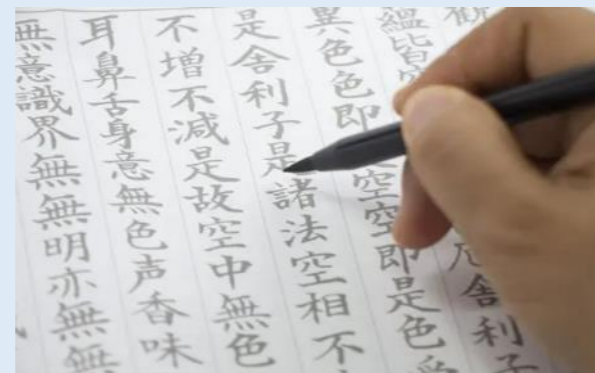 蘊皆厄舎利子
異色色即空空即是色
是舎利子是諸法空相不
不増不減是故空中無色
耳鼻舌身意無色声香味
無意識界無無明亦無無